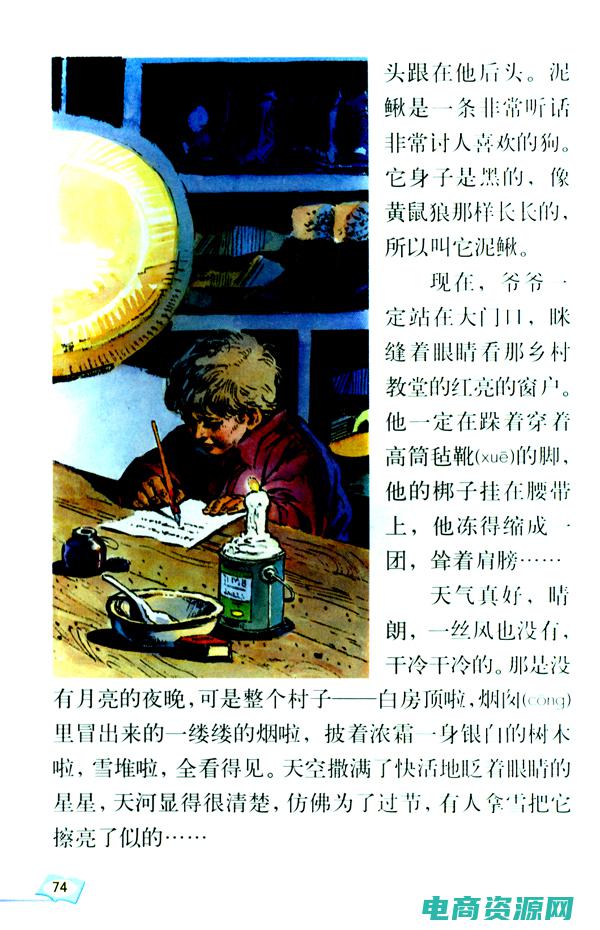 头跟在他后头。泥
鳅是一条非常听话
非常讨人喜欢的狗。
它身子是黑的，像
黄鼠狼那样长长的，
所以叫它泥鳅。
现在，爷爷一
定站在大门口，眯
缝着眼睛看那乡村
教堂的红亮的窗户。
他一定在跺着穿着
高筒毡靴(xuē)的脚，
他的梆子挂在腰带
上，他冻得缩成一
团，耸着肩膀……
天气真好，晴
朗，一丝风也没有，
干冷干冷的。那是没
有月亮的夜晚，可是整个村子——白房顶啦，烟囱(cōng)
里冒出来的一缕缕的烟啦，披着浓霜一身银白的树木
啦，雪堆啦，全看得见。天空撒满了快活地眨着眼睛的
星星，天河显得很清楚，仿佛为了过节，有人拿雪把它
擦亮了似的……
74
电商资源网